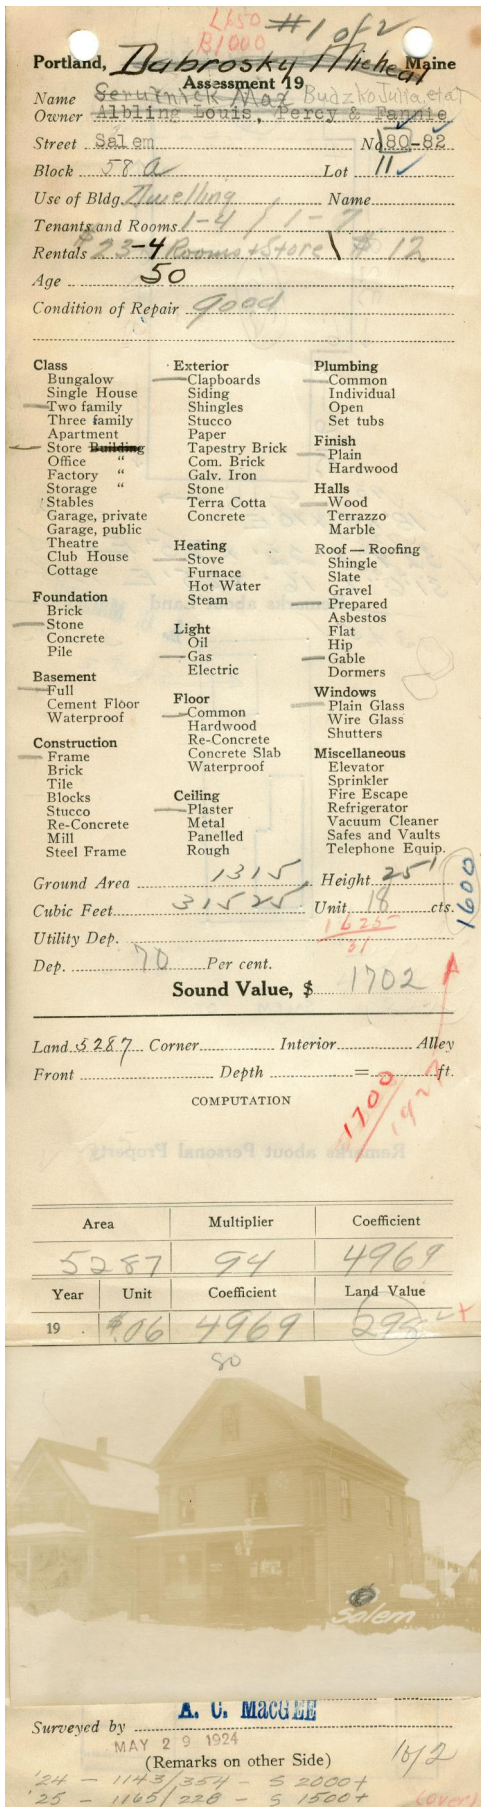 L650 #1 of 2
B1000
Portland, Dabrosky Micheal Maine
Assessment 19
Name Gerutnick Max Budzko Julia, etal
Owner Aibling Louis, Percy & Fannie
Street Salem No 80-82
Block 58 A Lot 11
Use of Bldg. Dwelling Name
Tenants and Rooms 1-4 / 1-7
Rentals $23-4 Rooms + Store \ $12
Age 50
Condition of Repair good
Class
Bungalow
Single House
Two family
Three family
Apartment
Store Building
Office "
Factory "
Storage "
Stables
Garage, private
Garage, public
Theatre
Club House
Cottage
Foundation
Brick
Stone
Concrete
Pile
Basement
Full
Cement Floor
Waterproof
Construction
Frame
Brick
Tile
Blocks
Stucco
Re-Concrete
Mill
Steel Frame
Exterior
Clapboards
Siding
Shingles
Stucco
Paper
Tapestry Brick
Com. Brick
Galv. Iron
Stone
Terra Cotta
Concrete
Heating
Stove
Furnace
Hot Water
Steam
Light
Oil
Gas
Electric
Floor
Common
Hardwood
Re-Concrete
Concrete Slab
Waterproof
Ceiling
Plaster
Metal
Panelled
Rough
Plumbing
Common
Individual
Open
Set tubs
Finish
Plain
Hardwood
Halls
Wood
Terrazzo
Marble
Roof — Roofing
Shingle
Slate
Gravel
Prepared
Asbestos
Flat
Hip
Gable
Dormers
Windows
Plain Glass
Wire Glass
Shutters
Miscellaneous
Elevator
Sprinkler
Fire Escape
Refrigerator
Vacuum Cleaner
Safes and Vaults
Telephone Equip.
Ground Area 1315 Height 25'
Cubic Feet 31525 Unit 18 cts.
1600
Utility Dep. 1625
51
Dep. 70 Per cent.
Sound Value, $ 1702
Land 5287 Corner Interior Alley
Front Depth = ft.
COMPUTATION
1700
1927
Remarks about Personal Property
Area Multiplier Coefficient
5287 94 4969
Year Unit Coefficient Land Value
19 $.06 4969 298
80
Salem
A. C. MacGEE
Surveyed by
MAY 29 1924
(Remarks on other Side) 1 of 2
'24 - 1143/354 - S 2000+
'25 - 1165/228 - S 1500+ (over)